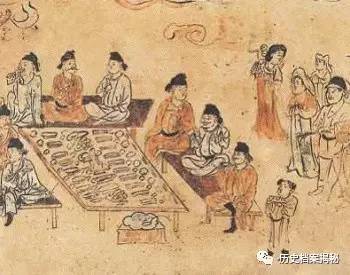 历史档案揭秘